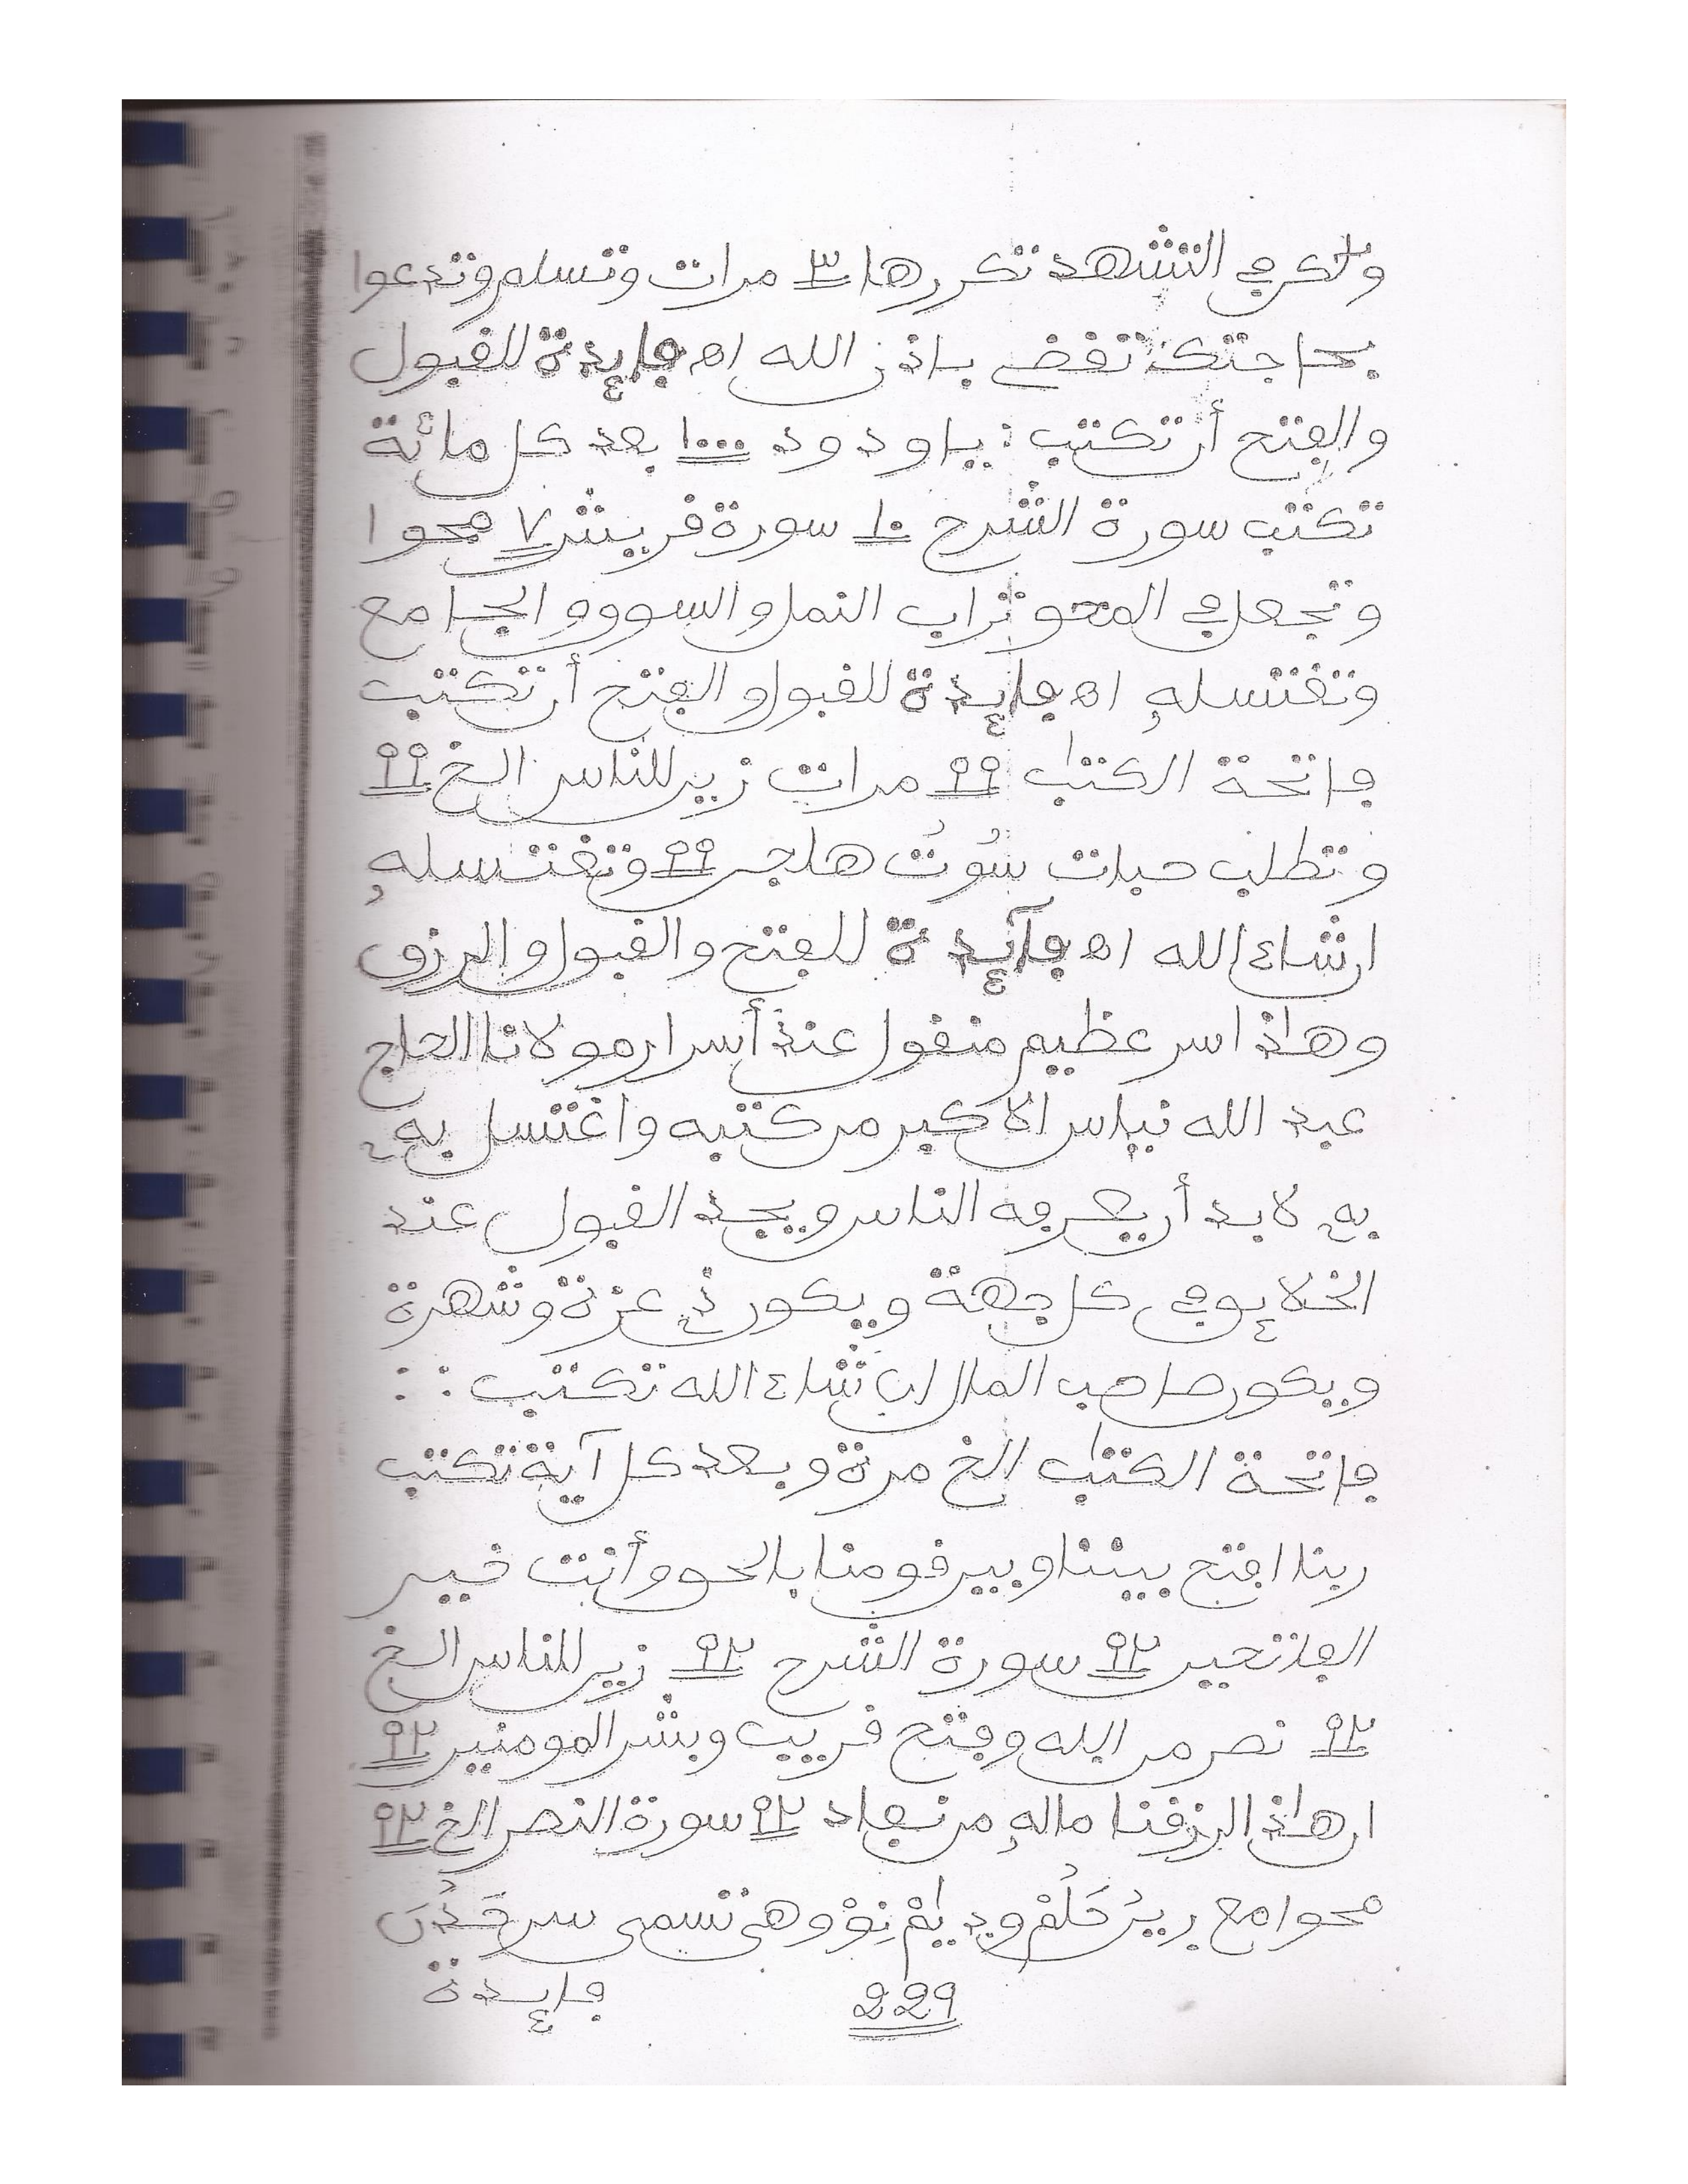 ولكن في التشهد تكررها ٣ مرات وتسلم وتدعوا
بحاجتك تقضى بإذن الله اه فايدة للقبول
والفتح أن تكتب: يا ودود ١٠٠٠ بعد كل مائة
تكتب سورة الشرح ١٠ سورة قريش ٧ محوا
وتجعل في المحو تراب النمل والسوق والجامع
وتغتسل به اه فايدة للقبول والفتح أن تكتب
فاتحة الكتب ٩٩ مرات زين للناس الخ ٩٩
وتطلب حبات سُوتُ هاجر ٩٩ وتغتسل به
إن شاء الله اه فآيدة للفتح والقبول والرزق
وهاذا سر عظيم منقول عند أسرار مولانا الحاج
عبد الله نياس الاكبر من كتبه واغتسل به
به لابد أن يعرفه الناس ويجد القبول عند
الخلايق في كل جهة ويكون ذي عزة وشهرة
ويكون صاحب المال إن شاء الله تكتب :
فاتحة الكتب الخ مرة وبعد كل آية تكتب
ربنا افتح بيننا وبين قومنا بالحق وأنت خير
الفاتحين ٩٢ سورة الشرح ٩٢ زين للناس الخ
٩٢ نصر من الله وفتح قريب وبشر المومنين ٩٢
ان هاذا لرزقنا ماله من نفاد ٩٢ سورة النصر الخ ٩٢
محوا مع وهي تسمى سر
229 فايدة